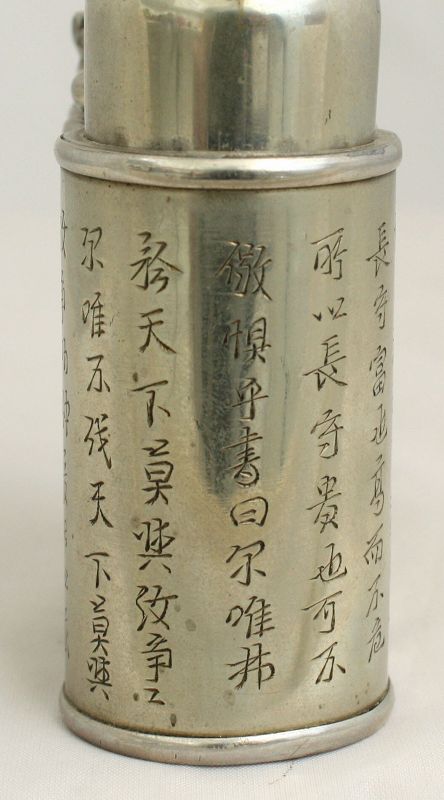 長守富也高而不危
所以長守貴也可不
儆惧乎書曰尔唯弗
矜天下莫與汝争
尔唯不伐天下莫與
汝争功